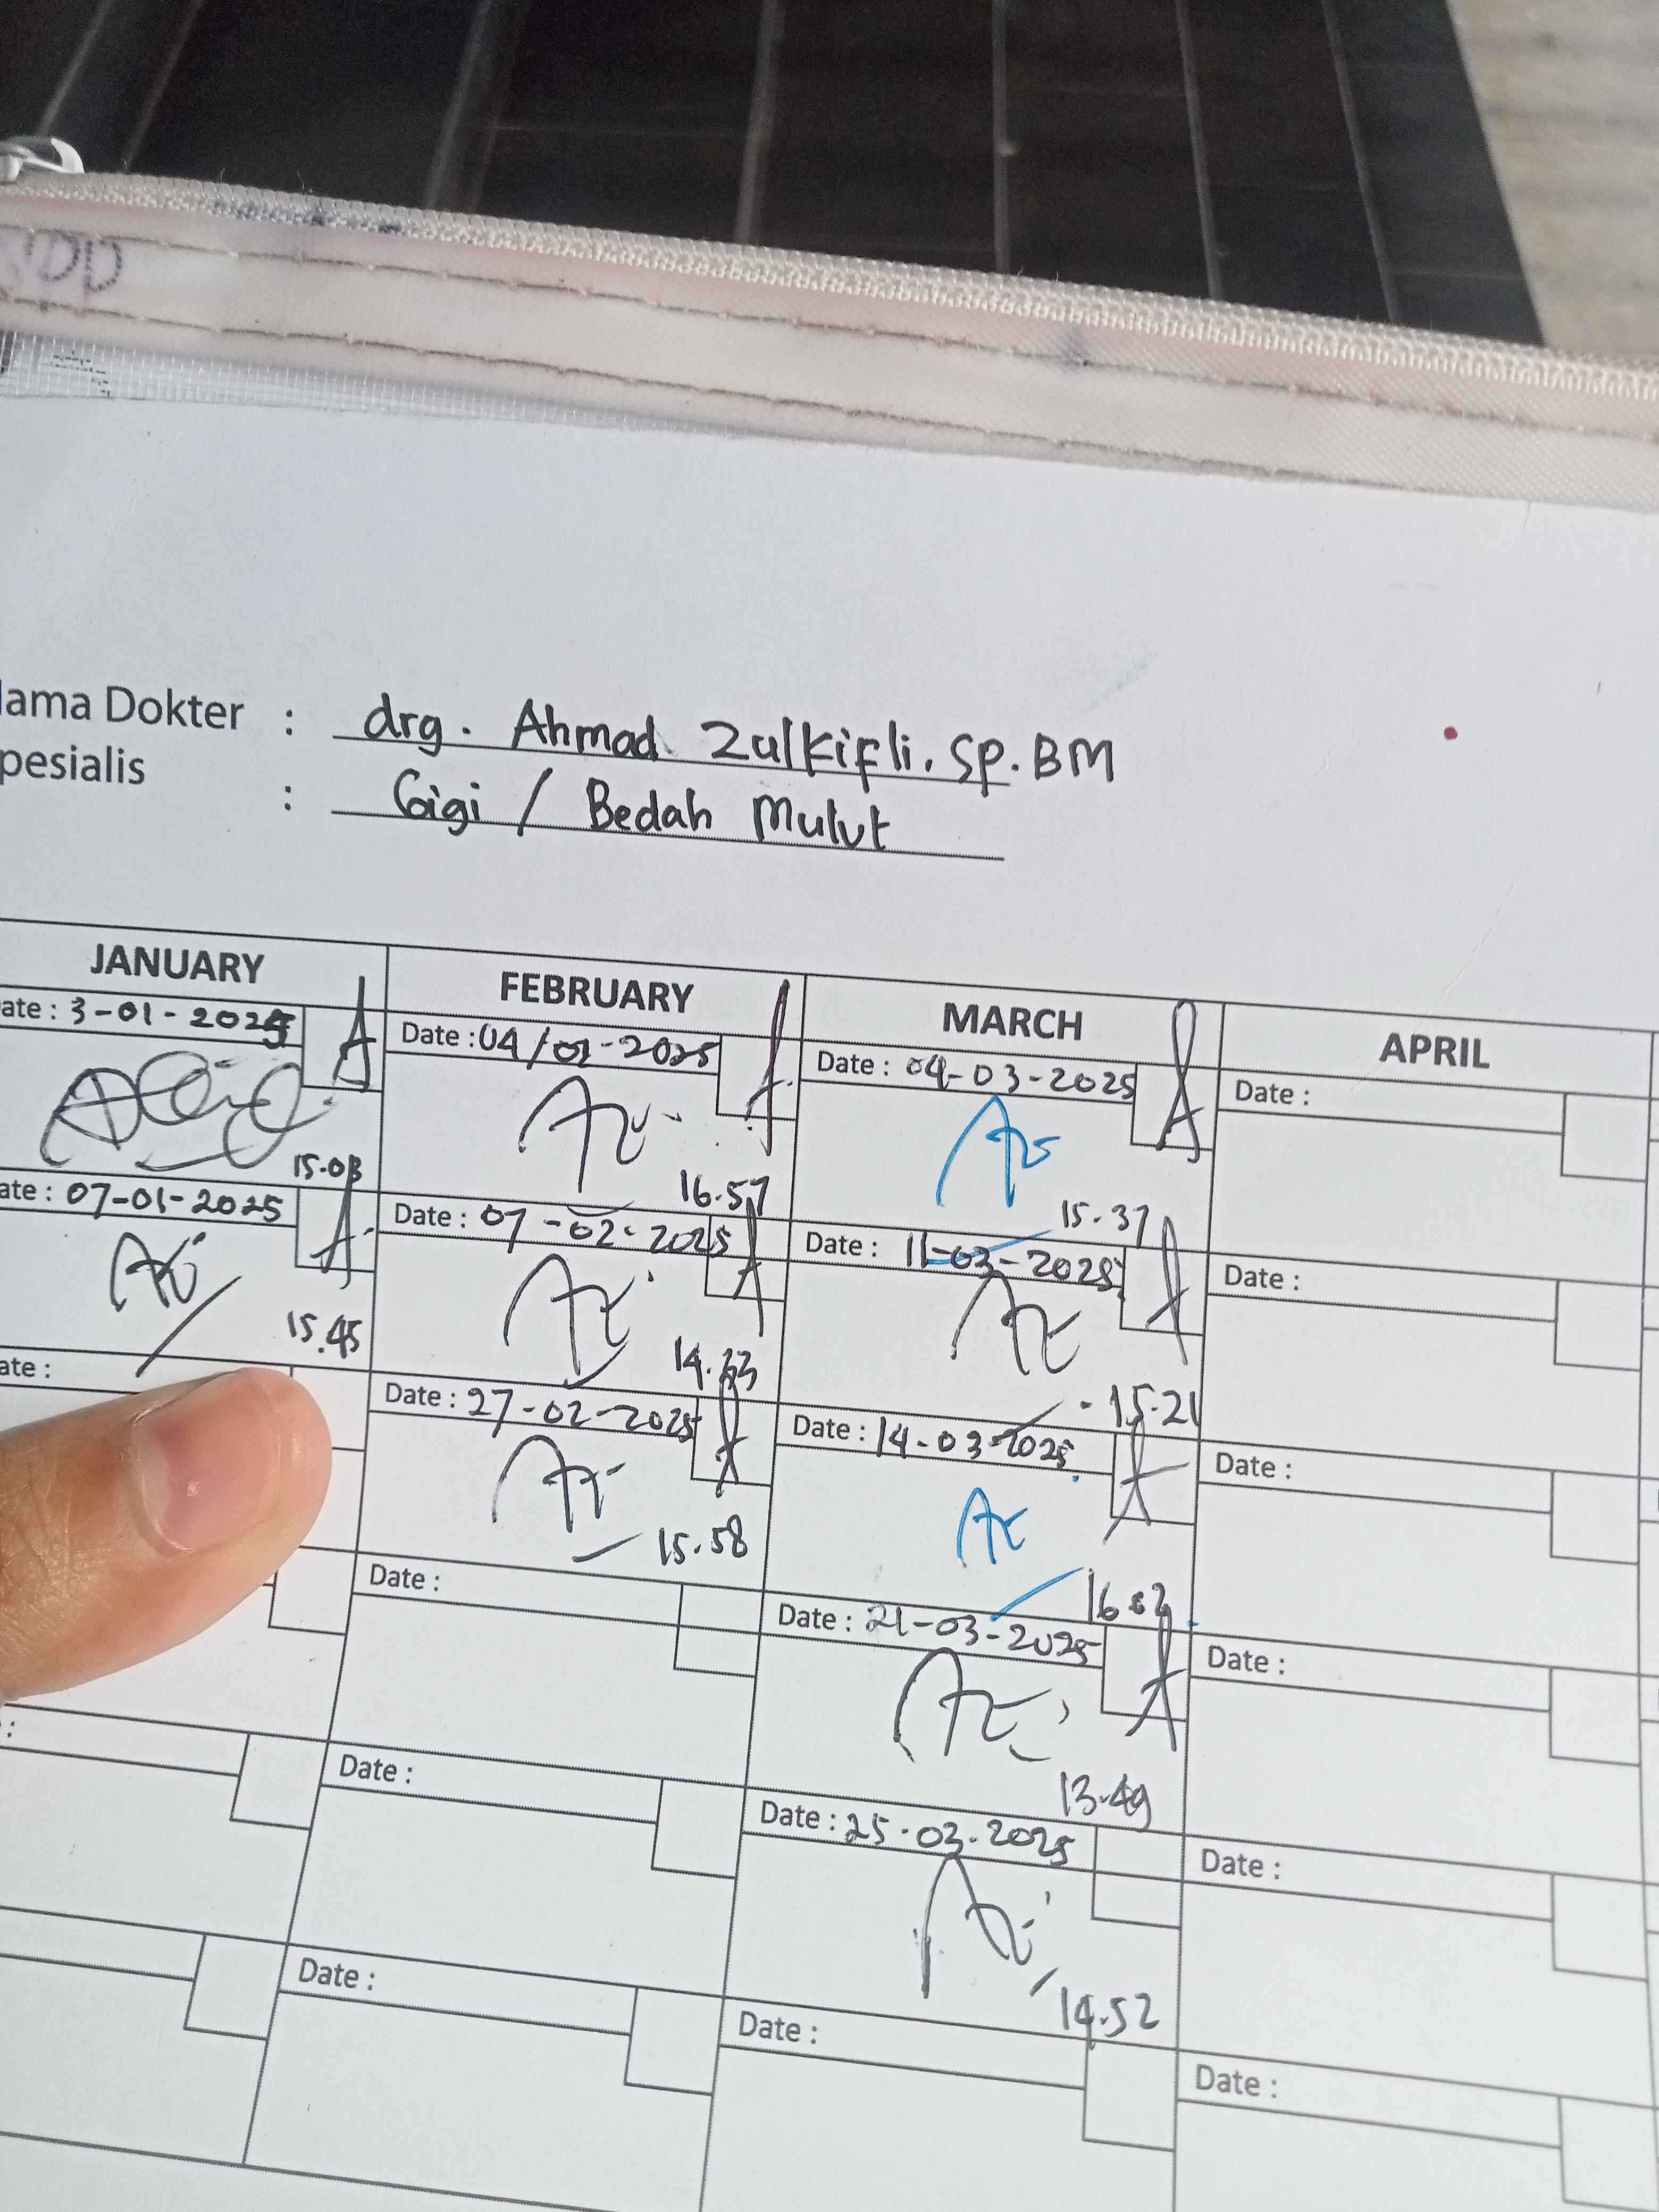 DD
lama Dokter : drg. Ahmad Zulkifli. Sp. BM
pesialis : Gigi / Bedah Mulut
JANUARY FEBRUARY MARCH APRIL
ate : 3-01-2025
Date : 04/02-2025
Date : 04-03-2025
Date :
15.03
16.57
15.37
ate : 07-01-2025
Date : 07-02-2025
Date : 11-03-2025
Date :
15.45
14.33
15.21
ate :
Date : 27-02-2025
Date : 14-03-2025
Date :
15.58
Date :
Date : 21-03-2025
Date :
13.49
:
Date :
Date : 25-03-2025
Date :
14.52
Date :
Date :
Date :